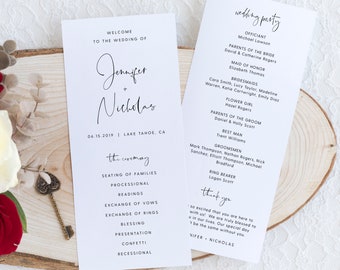 WELCOME
TO THE WEDDING OF
Jennifer
+
Nicholas
06.15.2019 | LAKE TAHOE, CA
the ceremony
SEATING OF FAMILIES
PROCESSIONAL
READINGS
EXCHANGE OF VOWS
EXCHANGE OF RINGS
BLESSING
PRESENTATION
CONFETTI
RECESSIONAL
wedding party
OFFICIANT
Michael Lawson
PARENTS OF THE BRIDE
David & Catherine Rogers
MAID OF HONOR
Elizabeth Thomas
BRIDESMAIDS
Cara Smith, Lucy Taylor, Madeline
Warren, Katie Cartwright, Emily Graz
FLOWER GIRL
Hazel Rogers
PARENTS OF THE GROOM
Daniel & Holly Scott
BEST MAN
Trent Williams
GROOMSMEN
Mark Thompson, Nathan Rogers, Nick
Sanchez, Elliot Thompson, Michael
Bradford
RING BEARER
Logan Scott
thank you
so excited that you are here to
with us! We truly blessed to
in our lives. Our day
be the same without you.
NIFER + NICHOLAS